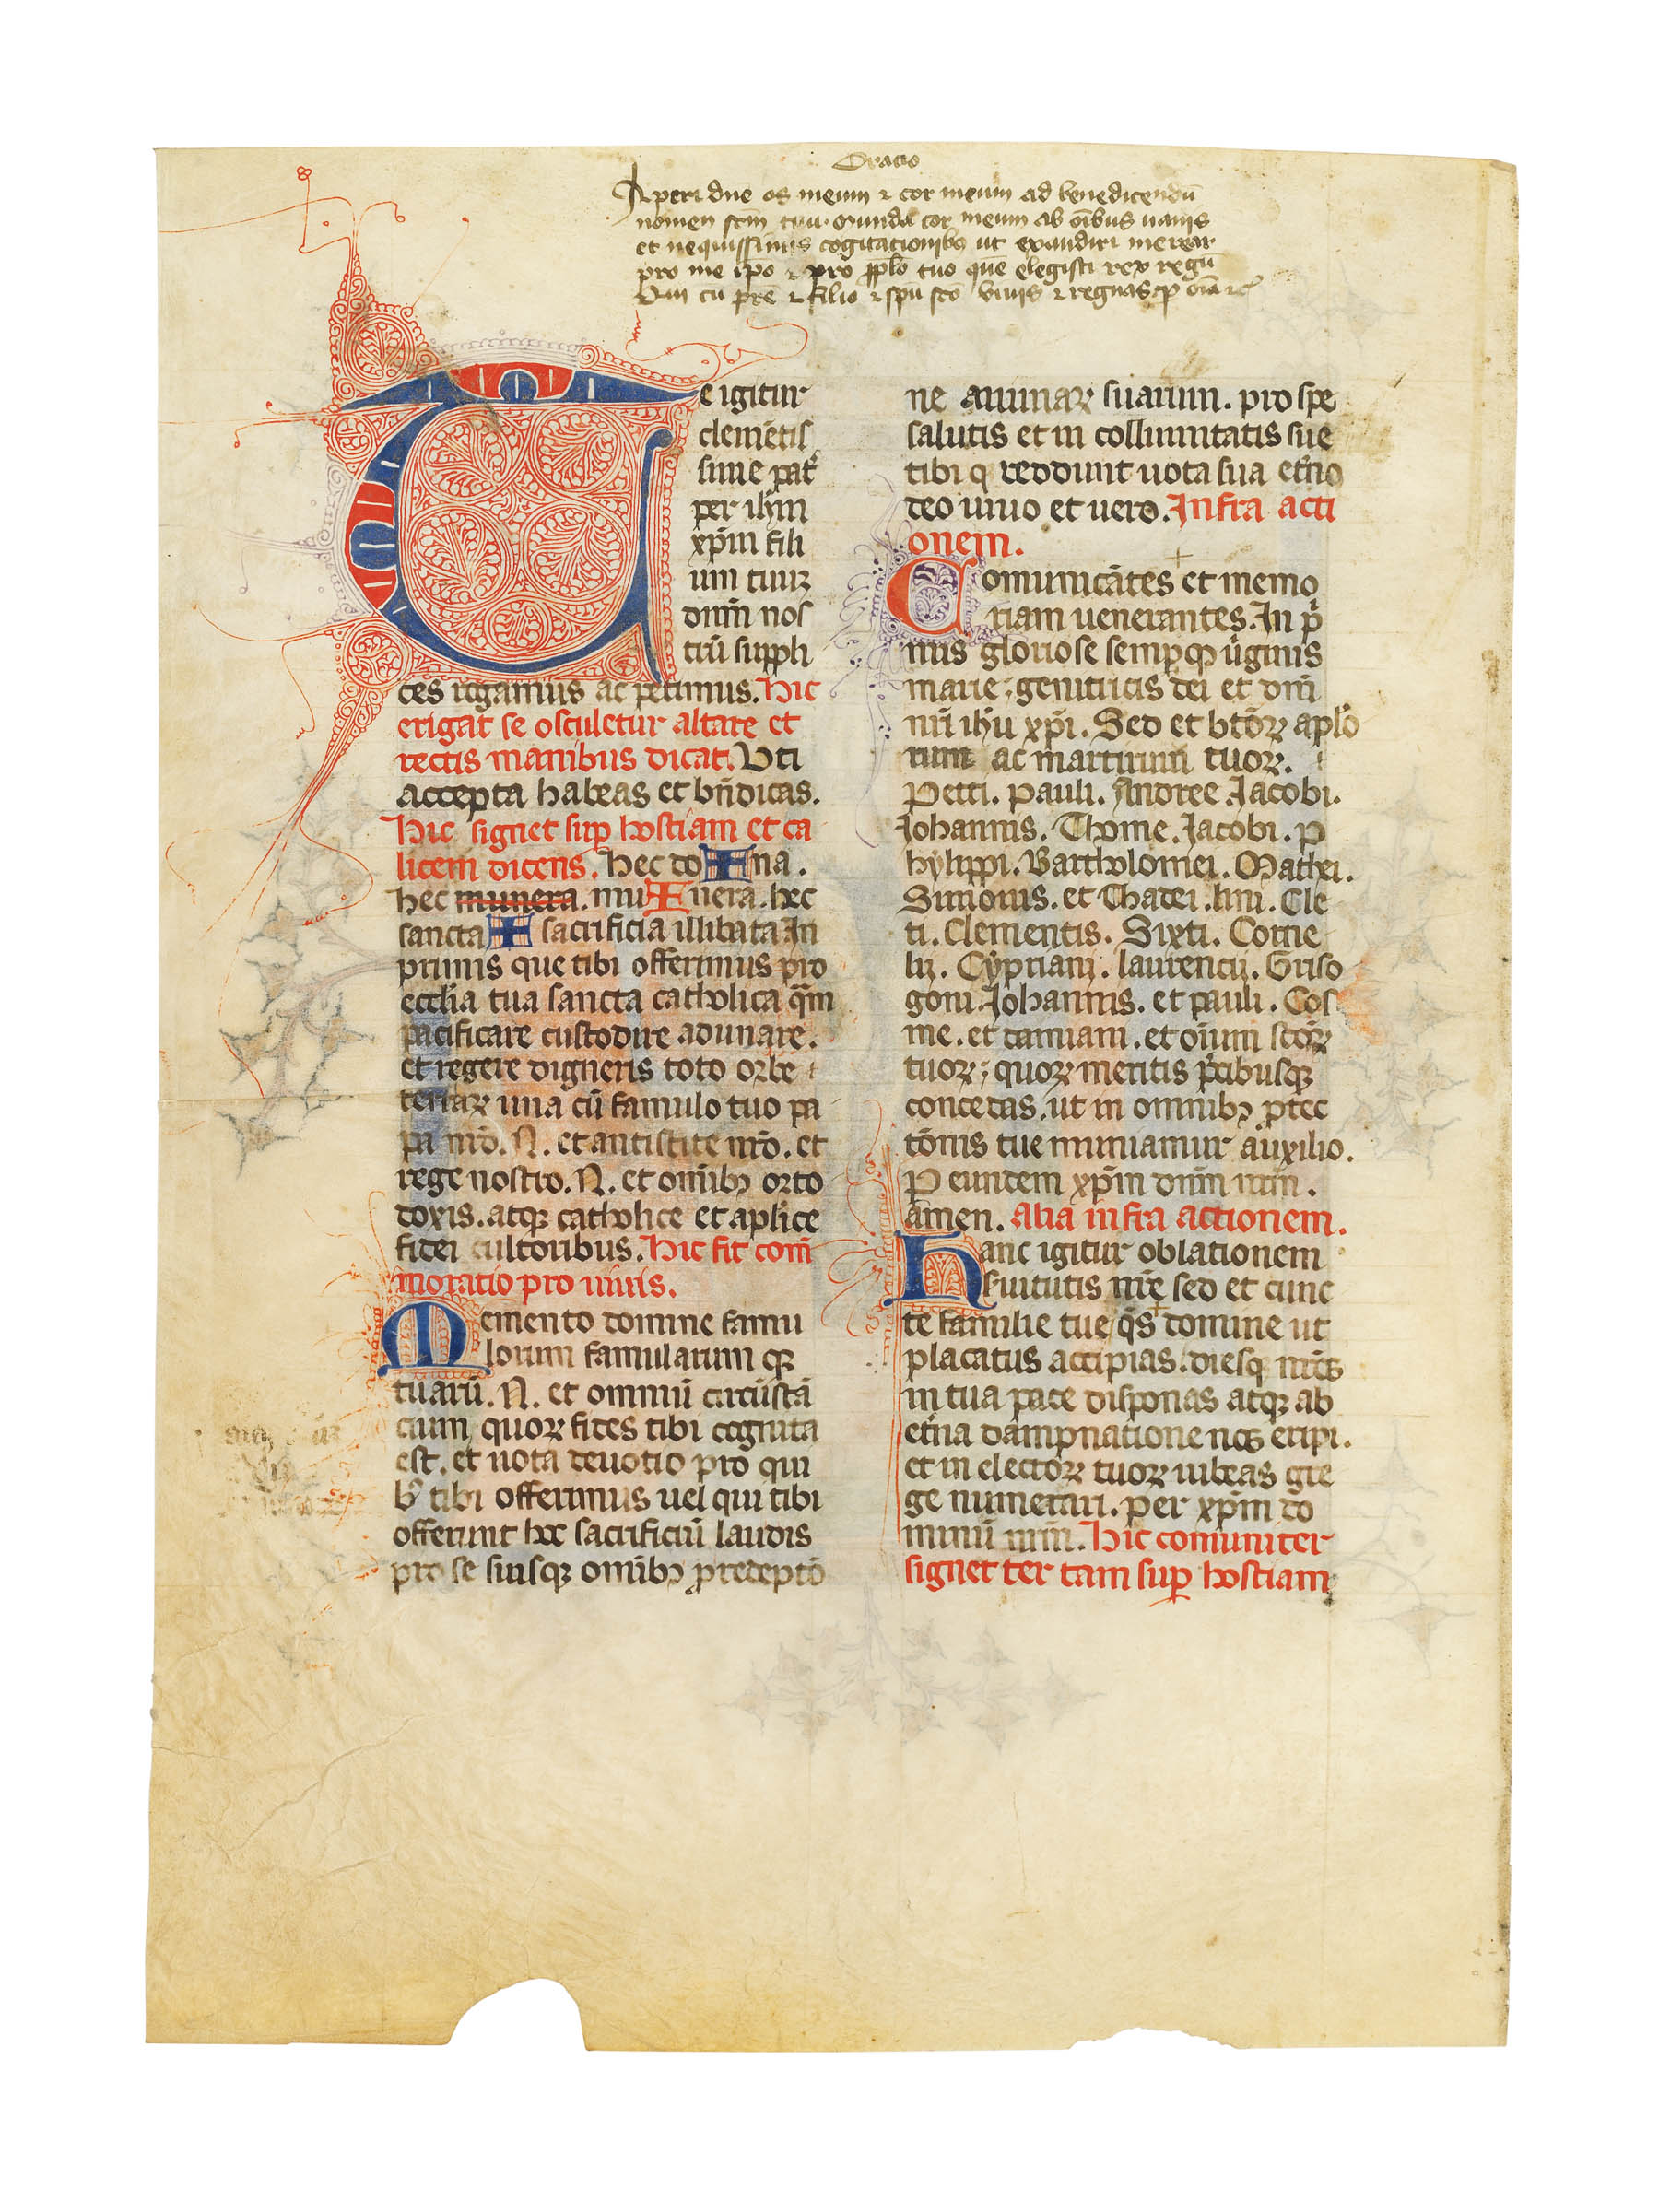 Oracio
Aperi dne os meum ⁊ cor meum ad benedicendū
nomen scm̄ tuū. Munda cor meum ab oībus vanis
et nequissimis cogitacionibꝫ ut exaudiri merear
pro me ip̄o ⁊ pro pplō tuo quē elegisti rex regū
Qui cū prē ⁊ filio ⁊ spū scō vivis ⁊ regnas p oīa
Te igitur
clemētis
sime pat̄
per ihm̄
xp̄m fili
um tuuꝫ
dnm̄ nos
trū suppli
ces rogamus ac petimus. Hic
erigat se osculetur altare et
rectis manibus dicat. Vti
accepta habeas et bn̄dicas.
Hic signet sup hostiam et ca
licem dicens. hec do ✠ na.
hec munera. mu ✠ nera. hec
sancta ✠ sacrificia illibata In
primis que tibi offerimus pro
eccl̄ia tua sancta catholica qm̄
pacificare custodire adunare.
et regere digneris toto orbe
terraꝝ una cū famulo tuo pa
pa nr̄o. N. et antistite nr̄o. et
rege nostro. N. et omībꝫ orto
doxis. atqꝫ catholice et apl̄ice
fidei cultoribus. Hic fit com̄
moratio pro uiuis.
Memento domine famu
lorum famularum qꝫ
tuarū. N. et omniū circūstā
cium quoꝝ fides tibi cognita
est. et nota deuotio pro qui
bꝫ tibi offerimus uel qui tibi
offerunt hoc sacrificiū laudis
pro se suisqꝫ omībꝫ predeptō
ne animaꝝ suarum. pro spe
salutis et in collumitatis sue
tibi q reddunt uota sua et̄no
deo uiuo et uero. Infra acti
onem.
Comunicātes et memo
riam uenerantes. In p̄
mis gloriose semp qꝫ ūginis
marie. genitricis dei et dn̄i
nr̄i ihū xp̄i. Sed et btōꝝ aplō
rum ac martirum tuoꝝ.
Petri. pauli. Andree. Jacobi.
Johannis. Thome. Jacobi. p
hylippi. Bartholomei. Mathei.
Simonis. et Thadei. lini. Cle
ti. Clementis. Sixti. Corne
lii. Cypriani. laurencii. Griso
goni. Johannis. et pauli. Cos
me. et damiani. et oīum scōꝝ
tuoꝝ; quoꝝ meritis p̄cibusqꝫ
concedas. ut in omnibꝫ ꝓtec
tōnis tue muniamur auxilio.
P eundem xp̄m dnm̄ nrm̄.
amen. Alia infra actionem.
Hanc igitur oblationem
s̄uitutis nr̄e sed et cunc
te familie tue q̄s domine ut
placatus accipias. diesq nr̄os
in tua pace disponas atqꝫ ab
et̄na dampnatione nos eripi.
et in electoꝝ tuoꝝ iubeas gre
ge numerari. per xp̄m do
minū nrm̄. Hic comuniter
signet ter tam sup hostiam